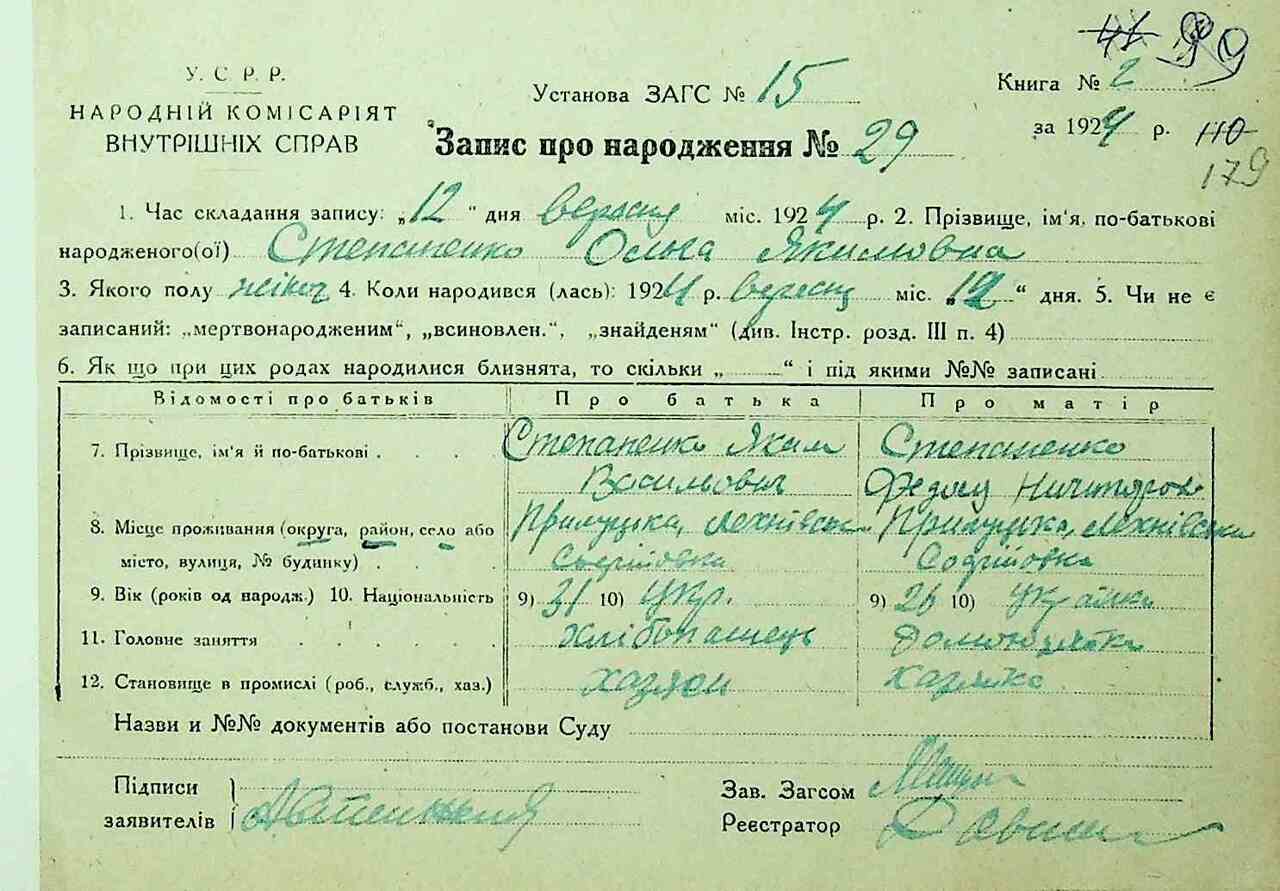 У. С Р. Р.
НАРОДНІЙ КОМІСАРІЯТ
ВНУТРІШНІХ СПРАВ
Установа ЗАГС № 15
Книга № 2
99
за 1924 р.
110
179
Запис про народження № 29
1. Час складання запису: „12" дня вересня міс. 1924 р. 2. Прізвище, ім'я, по-батькові
народженого(ої) Степаненко Ольга Якимовна
3. Якого полу жіноч 4. Коли народився (лась): 1924 р. вересня міс. „12" дня. 5. Чи не є
записаний: „мертвонародженим", „всиновлен.", „знайденям" (див. Інстр. розд. III п. 4)
6. Як що при цих родах народилися близнята, то скільки „ " і під якими №№ записані
Відомості про батьків Про батька Про матір
7. Прізвище, ім'я й по-батькові . . . . Степаненко Яким Степаненко
Васильович
8. Місце проживання (округа, район, село або Прилуцька, Лехнівськ Прилуцька, Лехнівськ
місто, вулиця, № будинку) . . . Софіївка Софіївка
9. Вік (років од народж.) 10. Національність 9) 31 10) Укр. 9) 26 10) Українка
11. Головне заняття . . . . . Хлібопашець
12. Становище в промислі (роб., служб., хаз.) хазяін хазяйка
Назви и №№ документів або постанови Суду
Підписи
заявителів
Зав. Загсом
Реєстратор